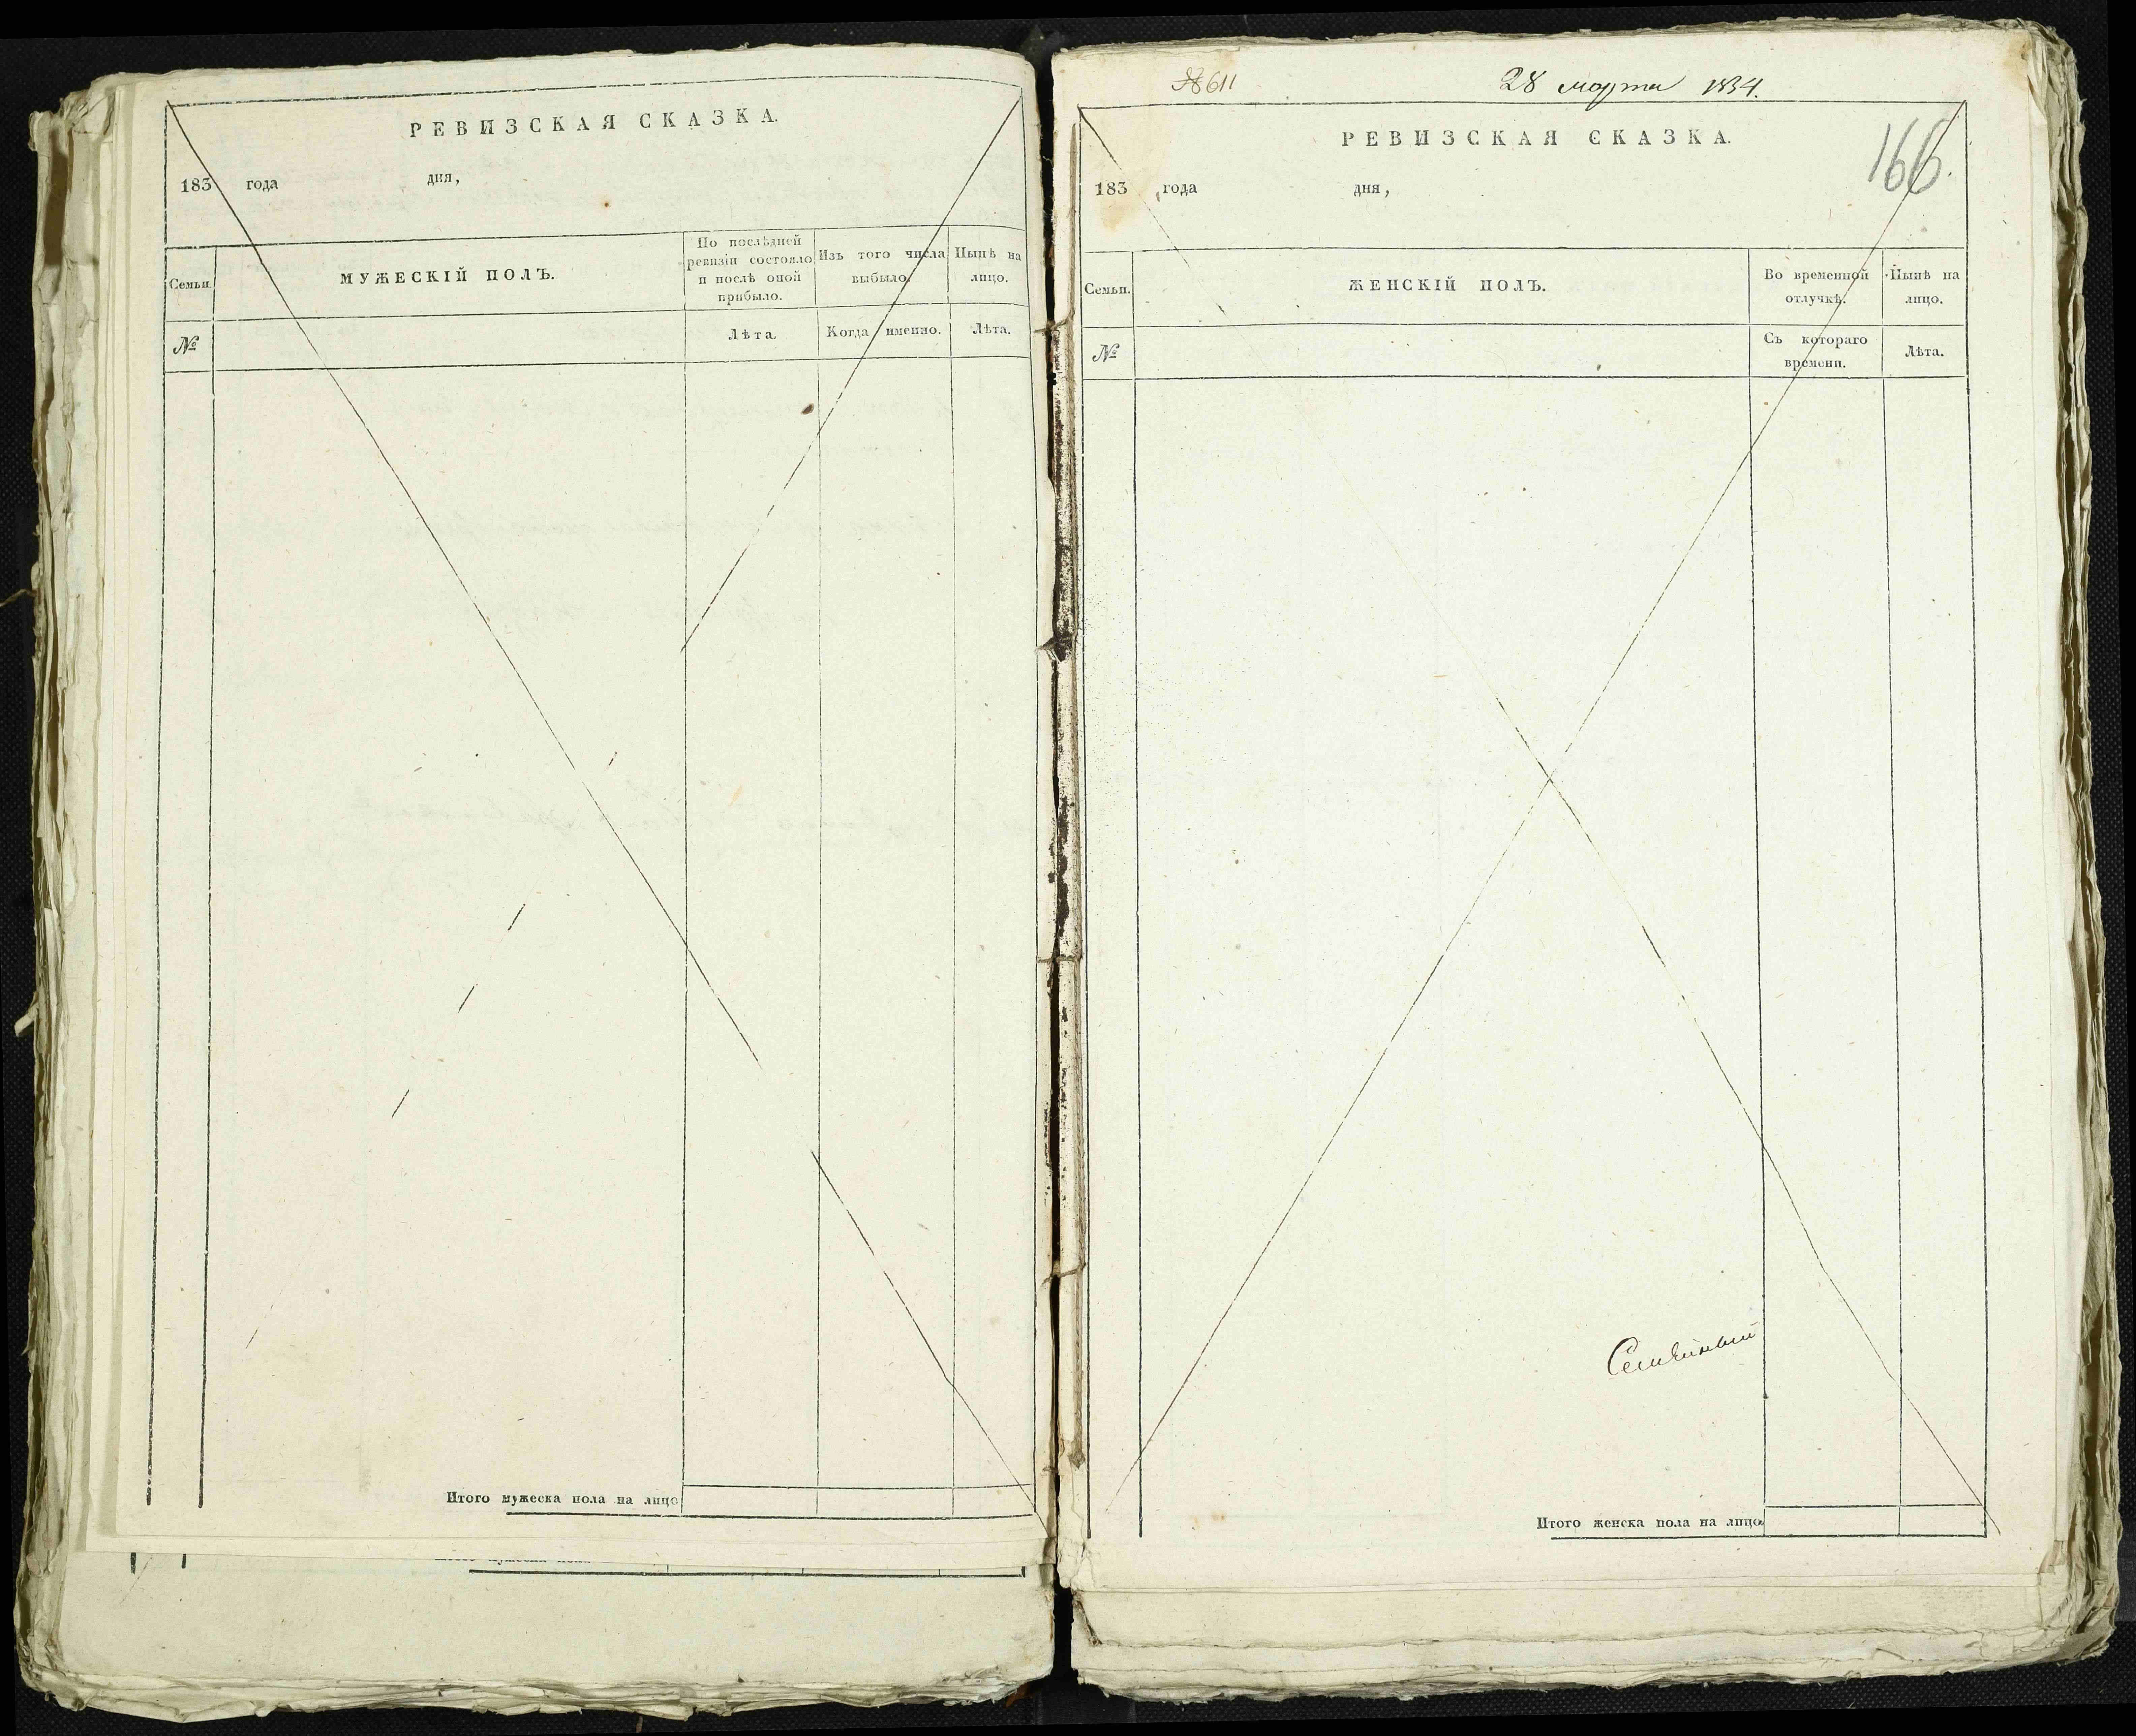 РЕВИЗСКАЯ СКАЗКА.
183 года дня,
Семьи.
МУЖЕСКІЙ ПОЛЪ.
По послѣдней
ревизіи состояло
и послѣ оной
прибыло.
Изъ того числа
выбыло.
Нынѣ на
лицо.
№
Лѣта.
Когда именно.
Лѣта.
Итого мужеска пола на лицо
№ 611
28 марта 1834.
РЕВИЗСКАЯ СКАЗКА.
166.
183 года дня,
Семьи.
ЖЕНСКІЙ ПОЛЪ.
Во временной
отлучкѣ.
Нынѣ на
лицо.
№
Съ котораго
времени.
Лѣта.
Итого женска пола на лицо